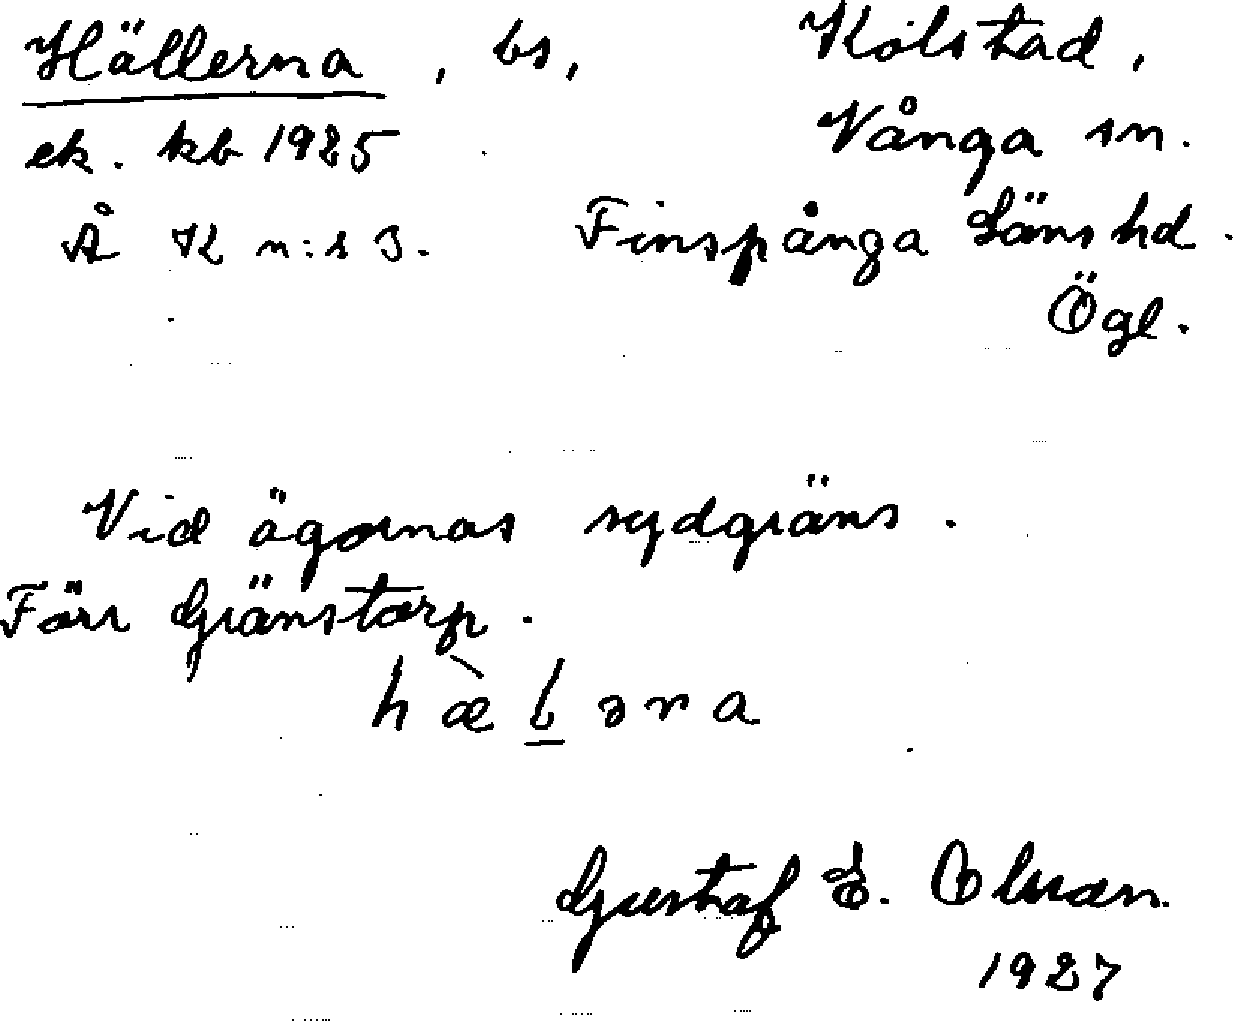 Hällerna, bs, Kolstad,
ek. kb 1925 Vånga sn.
Å K n:s 3. Finspånga Läns hd.
Ögl.
Vid ägornas sydgräns.
Förr Gränstorp.
hæ̀l̲ərna
Gustaf E. Olsson
1927